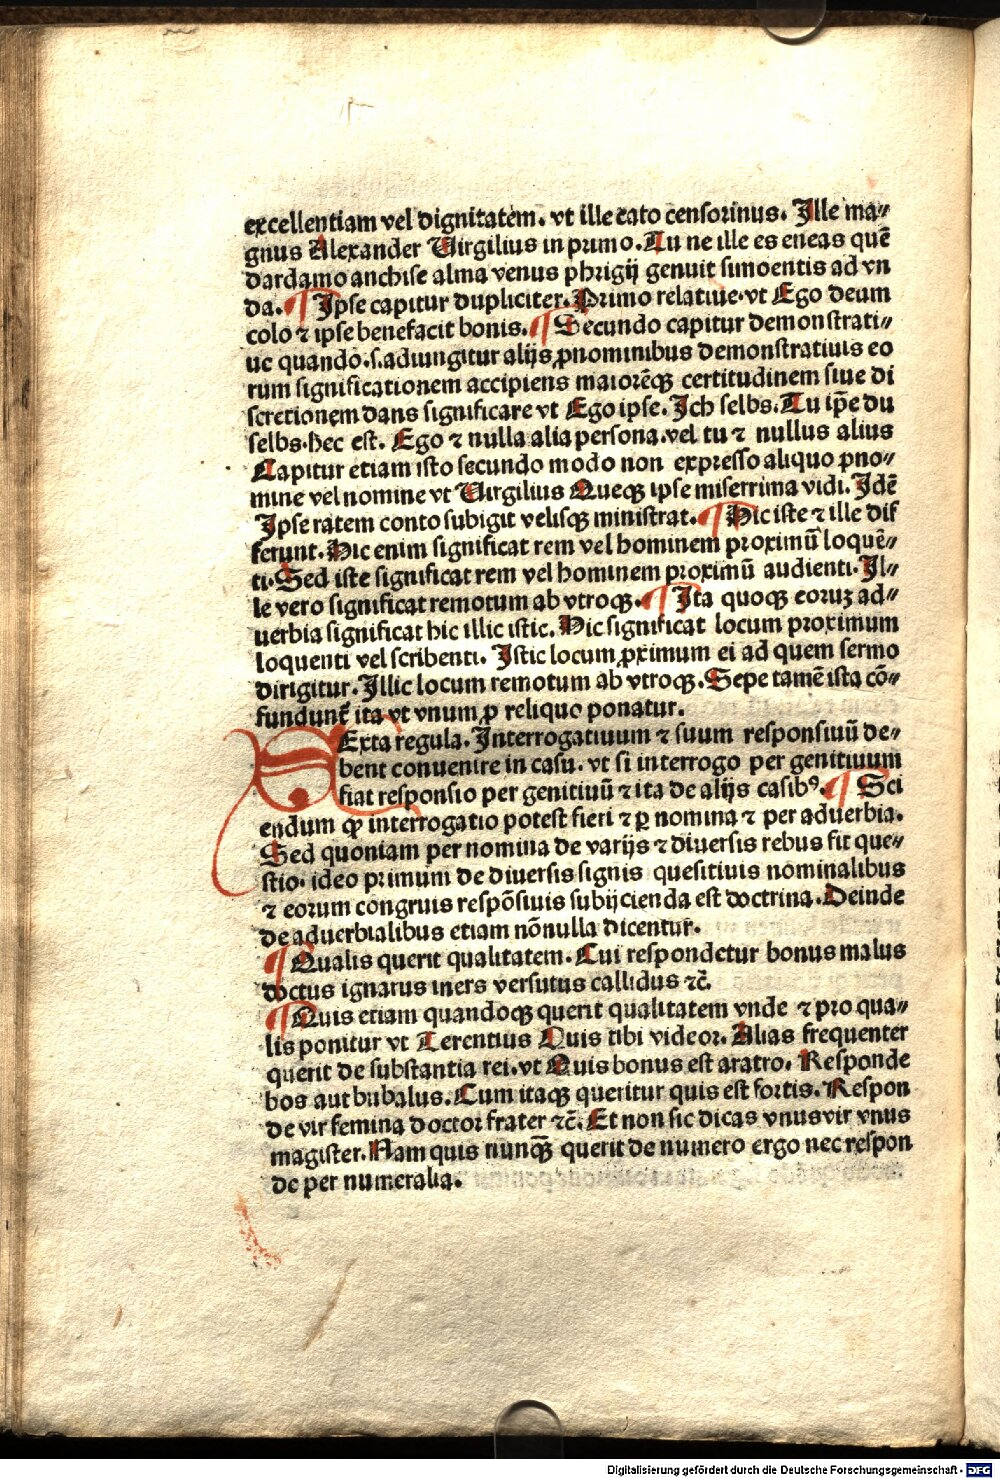 excellentiam vel dignitatem. vt ille cato censorinus. Ille ma⸗
gnus Alexander Virgilius in primo. Tu ne ille es eneas quē
dardamo anchise alma venus phrigij genuit simoentis ad vn
da. ¶ Ipse capitur dupliciter. Primo relatiue. vt Ego deum
colo ⁊ ipse benefacit bonis. ¶ Secundo capitur demonstrati⸗
ue quando .s. adiungitur alijs ꝓnominibus demonstratiuis eo
rum significationem accipiens maiorēqꝫ certitudinem siue di
scretionem dans significare vt Ego ipse. Ich selbs. Tu ip̄e du
selbs. hec est. Ego ⁊ nulla alia persona. vel tu ⁊ nullus alius
Capitur etiam isto secundo modo non expresso aliquo ꝓno⸗
mine vel nomine vt Virgilius Queqꝫ ipse miserrima vidi. Idē
Ipse ratem conto subigit velisqꝫ ministrat. ¶ Hic iste ⁊ ille dif
ferunt. Hic enim significat rem vel hominem proximū loquē⸗
ti. Sed iste significat rem vel hominem proximū audienti. Il⸗
le vero significat remotum ab vtroqꝫ. ¶ Ita quoqꝫ eoruꝫ ad⸗
uerbia significat hic illic istic. Hic significat locum proximum
loquenti vel scribenti. Istic locum ꝓximum ei ad quem sermo
dirigitur. Illic locum remotum ab vtroqꝫ. Sepe tamē ista cō⸗
fundunt᷑ ita vt vnum ꝓ reliquo ponatur.
SExta regula. Interrogatiuum ⁊ suum responsiuū de⸗
bent conuenire in casu. vt si interrogo per genitiuum
fiat responsio per genitiuū ⁊ ita de alijs casibꝰ. ¶ Sci
endum ꝙ interrogatio potest fieri ⁊ ꝑ nomina ⁊ per aduerbia.
Sed quoniam per nomina de varijs ⁊ diuersis rebus fit que⸗
stio. ideo primum de diuersis signis quesitiuis nominalibus
⁊ eorum congruis respōsiuis subijcienda est doctrina. Deinde
de aduerbialibus etiam nōnulla dicentur.
¶ Qualis querit qualitatem. Cui respondetur bonus malus
doctus ignarus iners versutus callidus ⁊c̄.
¶ Quis etiam quandoqꝫ querit qualitatem vnde ⁊ pro qua⸗
lis ponitur vt Terentius Quis tibi videor. Alias frequenter
querit de substantia rei. vt Quis bonus est aratro. Responde
bos aut bubalus. Cum itaqꝫ queritur quis est fortis. Respon
de vir femina doctor frater ⁊c̄. Et non sic dicas vnus vir vnus
magister. Nam quis nunqꝫ̄ querit de numero ergo nec respon
de per numeralia.
Digitalisierung gefördert durch die Deutsche Forschungsgemeinschaft - DFG